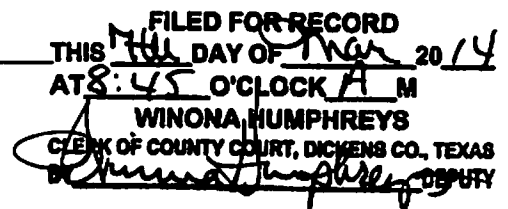 FILED FOR RECORD
THIS 7th DAY OF Mar 20 14
AT 8:45 O'CLOCK A M
WINONA HUMPHREYS
CLERK OF COUNTY COURT, DICKENS CO., TEXAS
BY Winona Humphreys DEPUTY